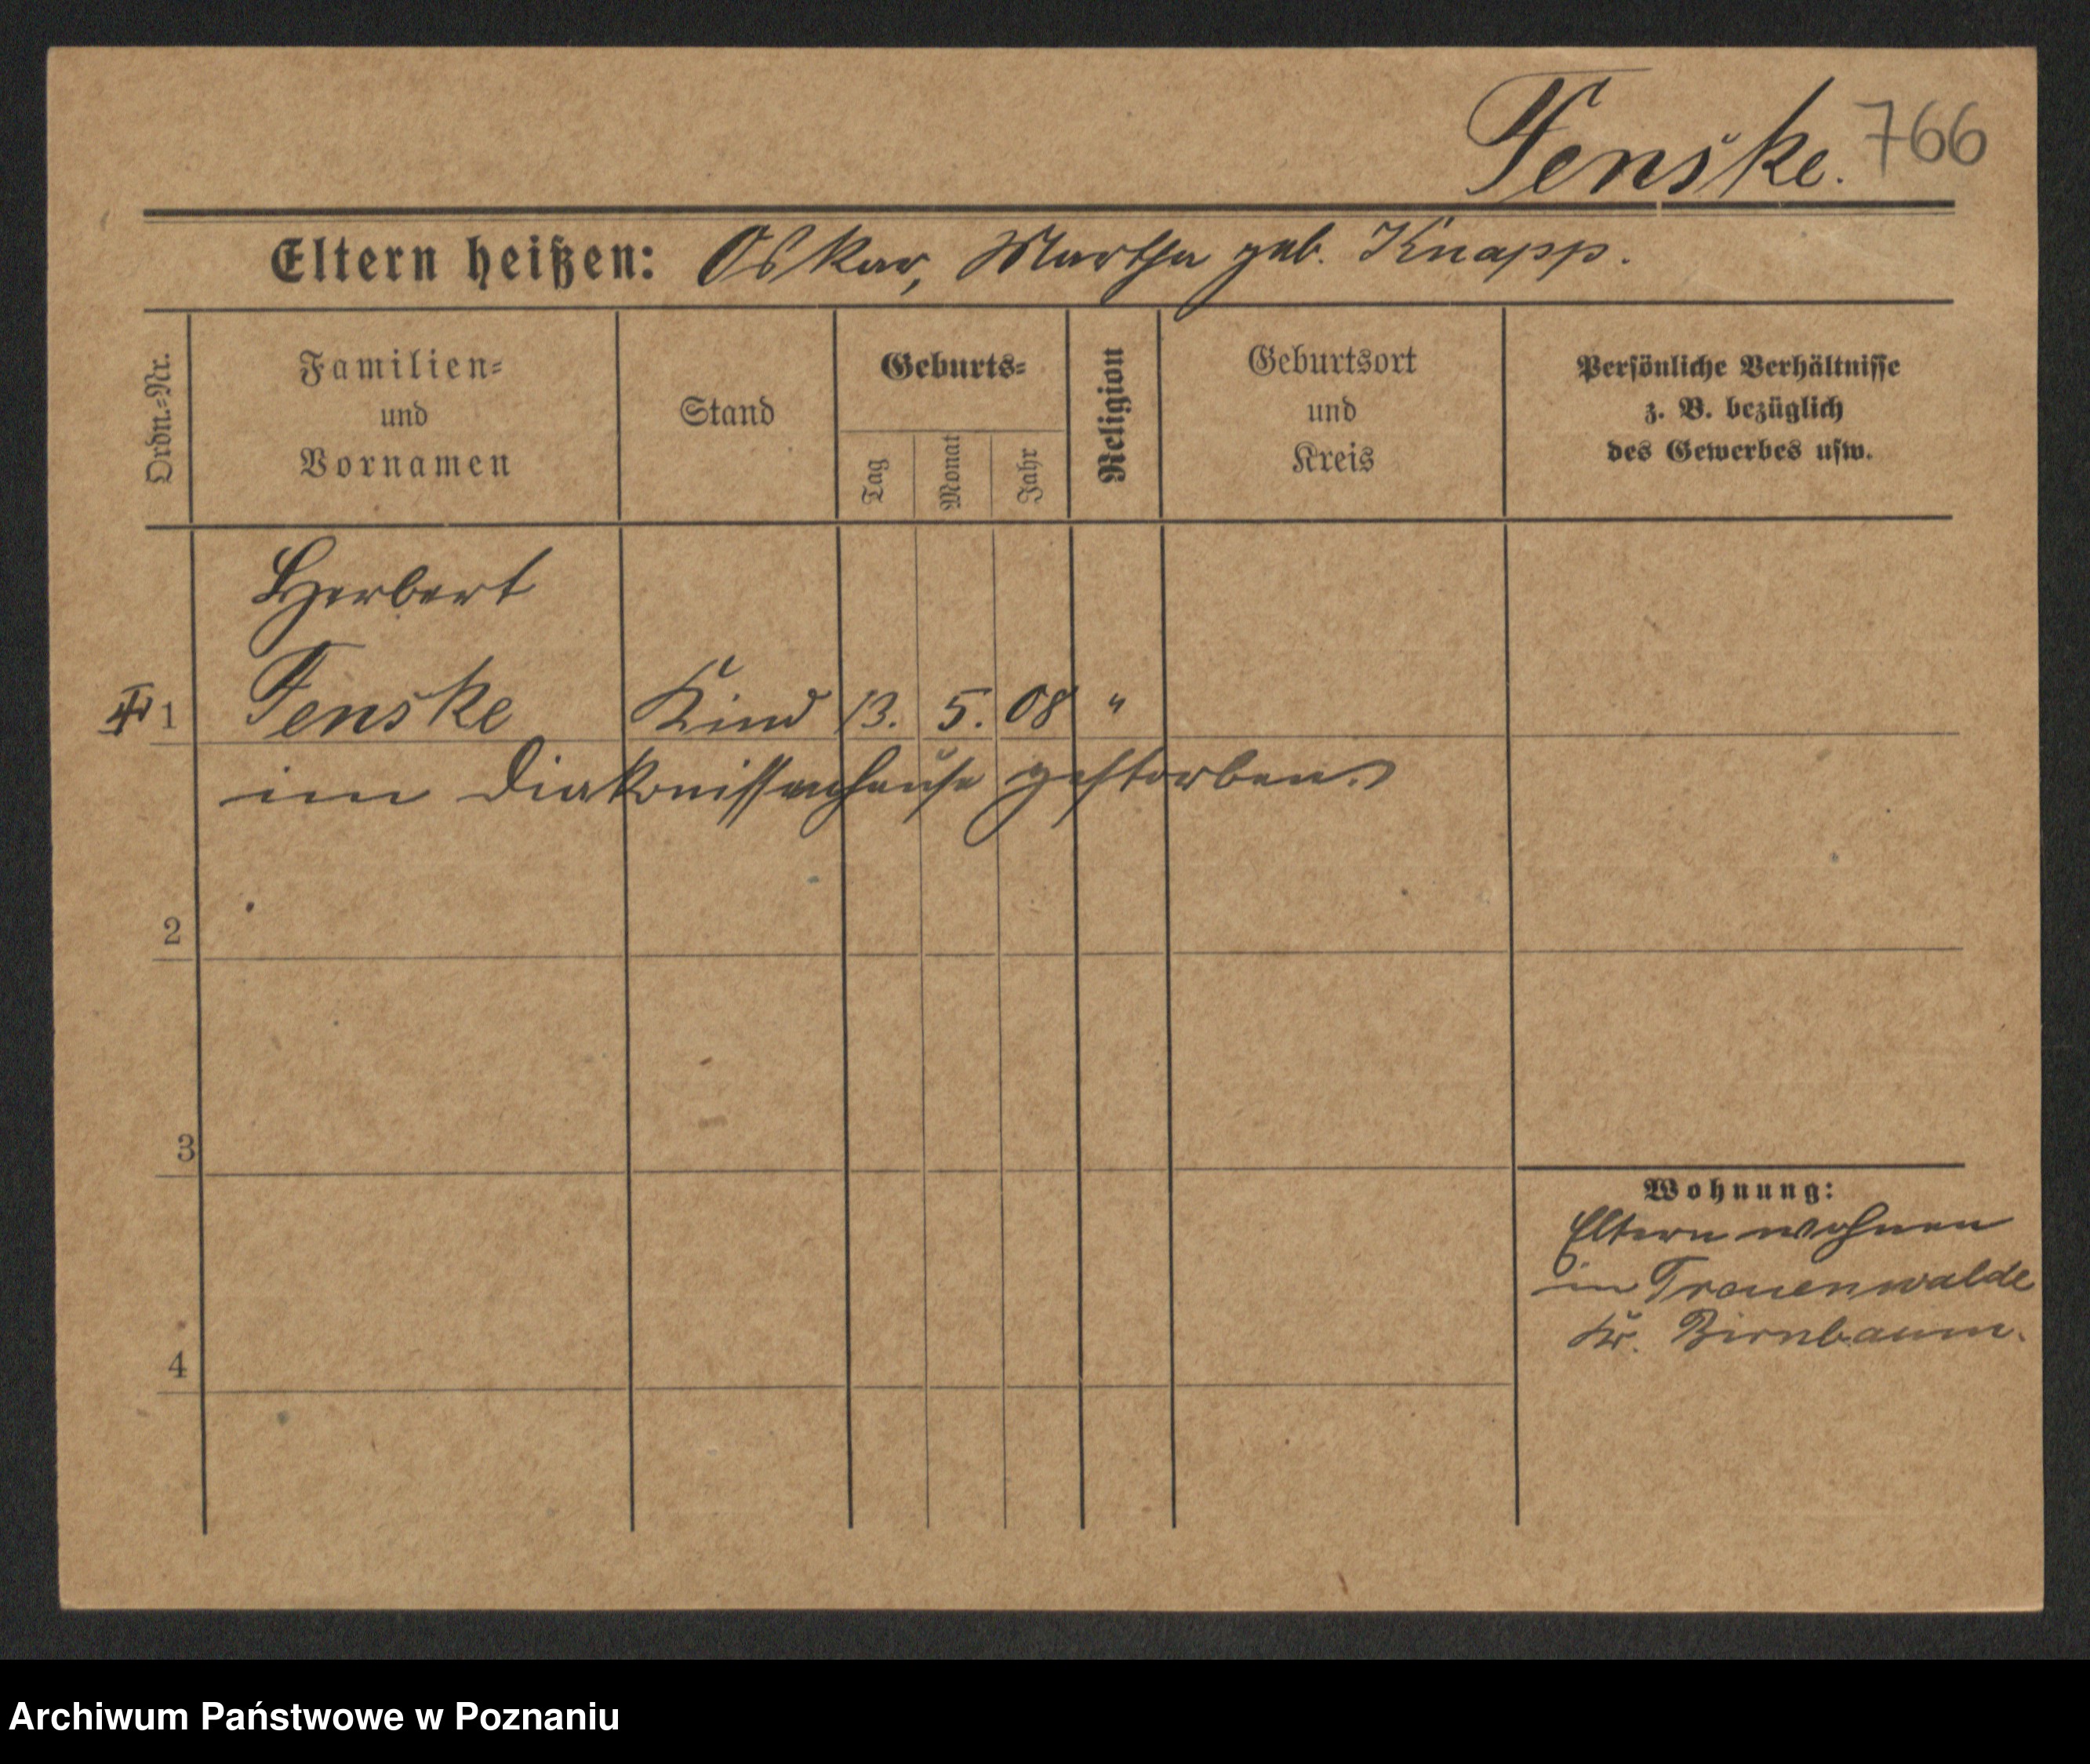 Fenske. 766
Eltern heißen: Oskar, Martha geb. Knapp.
Ordn.-Nr.
Familien-
und
Vornamen
Stand
Geburts-
Tag
Monat
Jahr
Religion
Geburtsort
und
Kreis
Persönliche Verhältnisse
z. B. bezüglich
des Gewerbes usw.
Herbert
1 Fenske Kind 13. 5. 08 "
im Diakonissenhause gestorben.
2
3
4
Wohnung:
Eltern wohnen
in
Kr. Birnbaum.
Archiwum Państwowe w Poznaniu